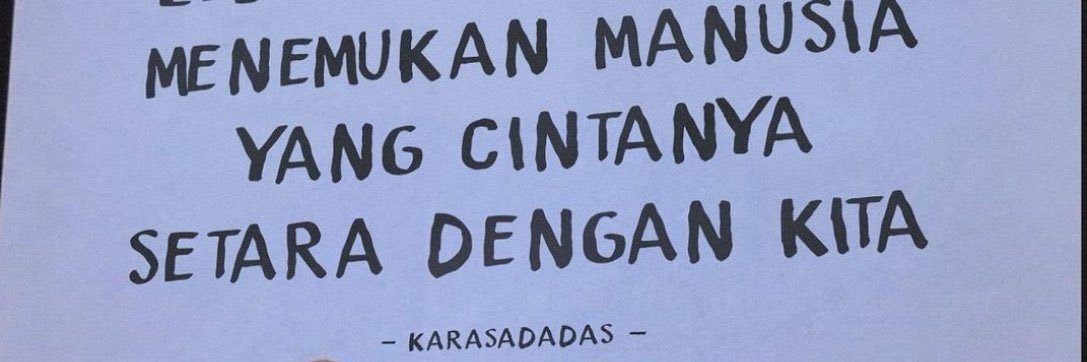 MENEMUKAN MANUSIA
YANG CINTANYA
SETARA DENGAN KITA
- KARASADADAS -